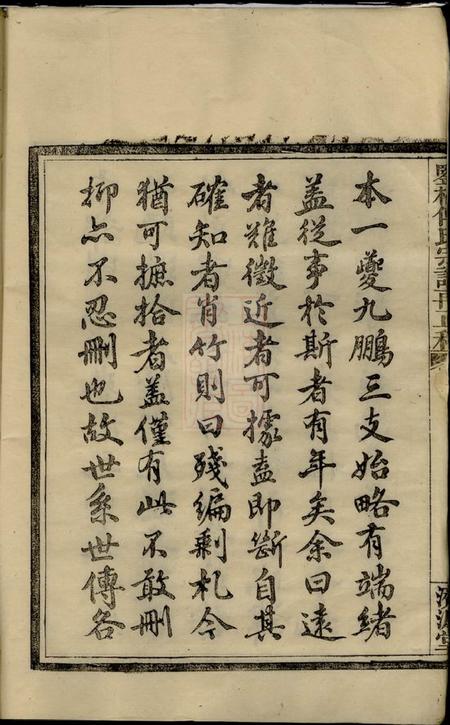 本一夔九鵬三支始略有端緒
蓋從事於斯者有年矣余曰遠
者難徵近者可據盍即斷自其
確知者肖竹則曰殘編剩札今
猶可摭拾者蓋僅有此不敢刪
抑亦不忍刪也故世系世傳各